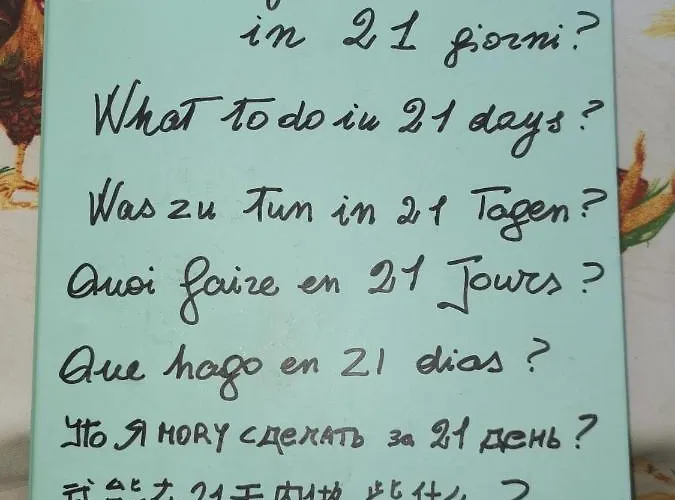 in 21 giorni?
What to do in 21 days?
Was zu tun in 21 Tagen?
Quoi faire en 21 Jours?
Que hago en 21 dias?
Что Я МОГУ СДЕЛАТЬ за 21 ДЕНЬ?
我能在21天内做些什么?